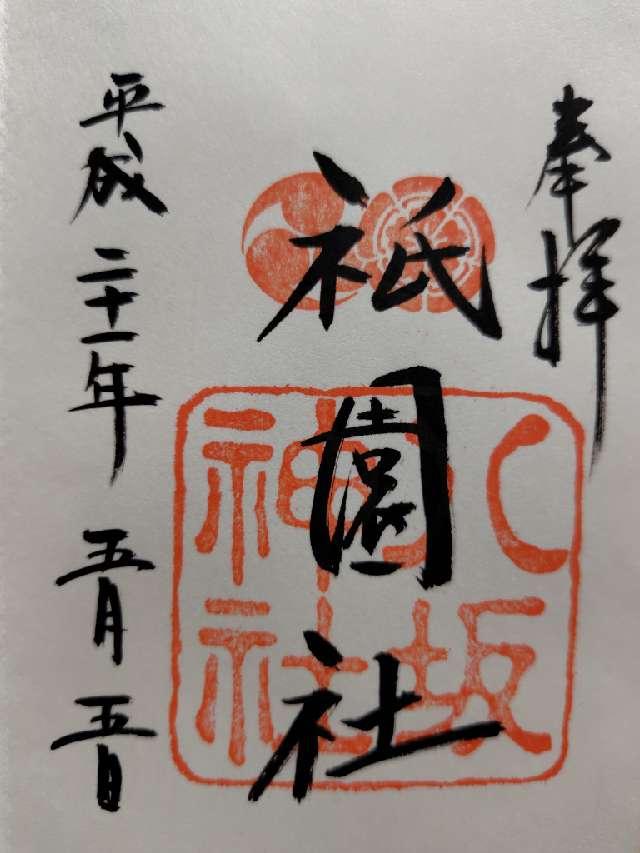 奉拝
祇園社
八坂
神社
平成二十一年五月五日